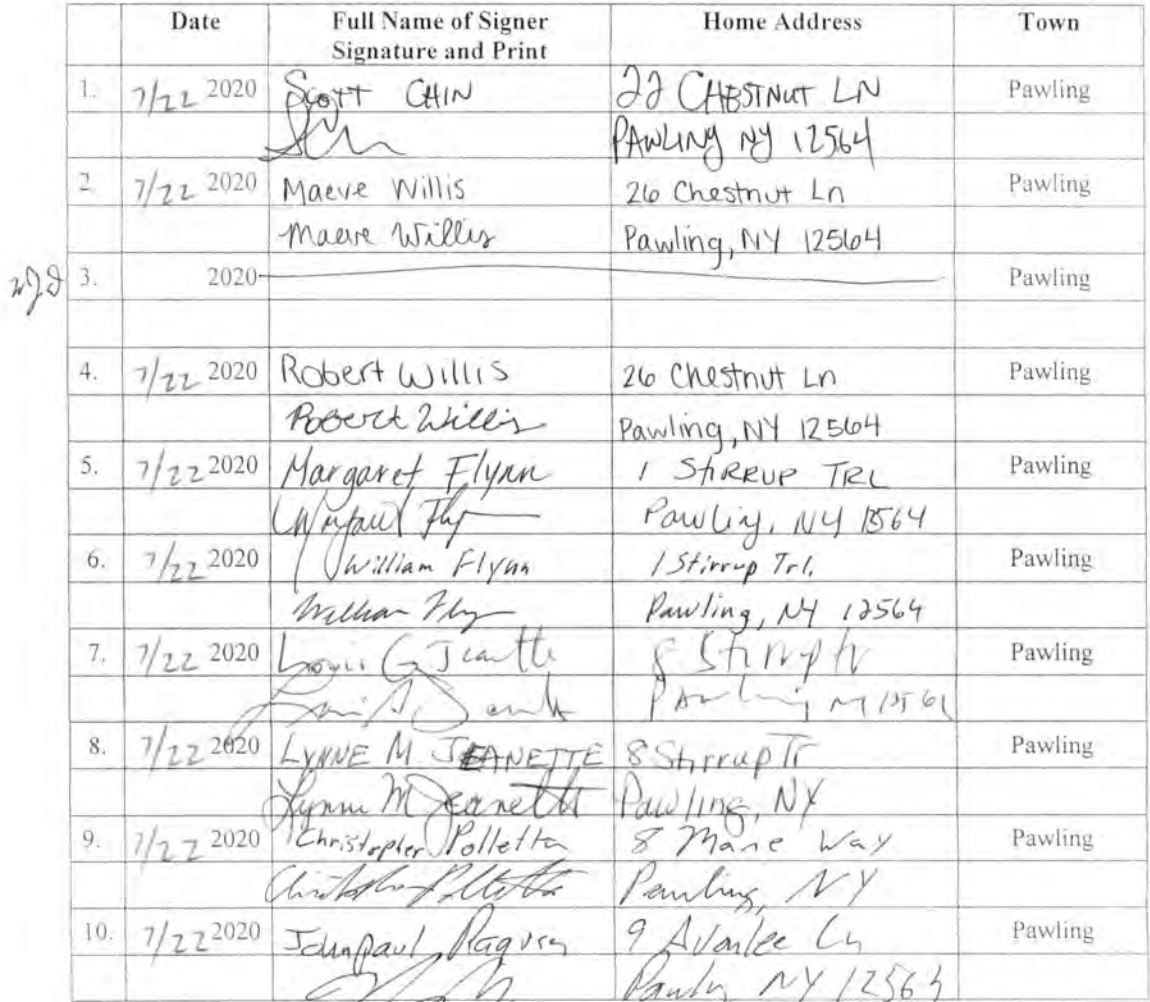 Date Full Name of Signer Home Address Town
Signature and Print
1. 7/22 2020 Scott CHIN 22 CHESTNUT LN Pawling
PAWLING NY 12564
2. 7/22 2020 Maeve Willis 26 Chestnut Ln Pawling
Maeve Willis Pawling, NY 12564
3. 2020 Pawling
4. 7/22 2020 Robert Willis 26 Chestnut Ln Pawling
Robert Willis Pawling, NY 12564
5. 7/22 2020 Margaret Flynn 1 STIRRUP TRL Pawling
Pawling, NY 12564
6. 7/22 2020 William Flynn 1 Stirrup Trl. Pawling
William Flynn Pawling, NY 12564
7. 7/22 2020 Louis G Jeanette 8 Stirrup Tr Pawling
Pawling NY
8. 7/22 2020 LYNNE M JEANETTE 8 Stirrup Tr Pawling
Lynne M Jeanette Pawling, NY
9. 7/22 2020 Christopher Polletta 8 Mane Way Pawling
Christopher Polletta Pawling, NY
10. 7/22 2020 Johnpaul 9 Pawling
NY